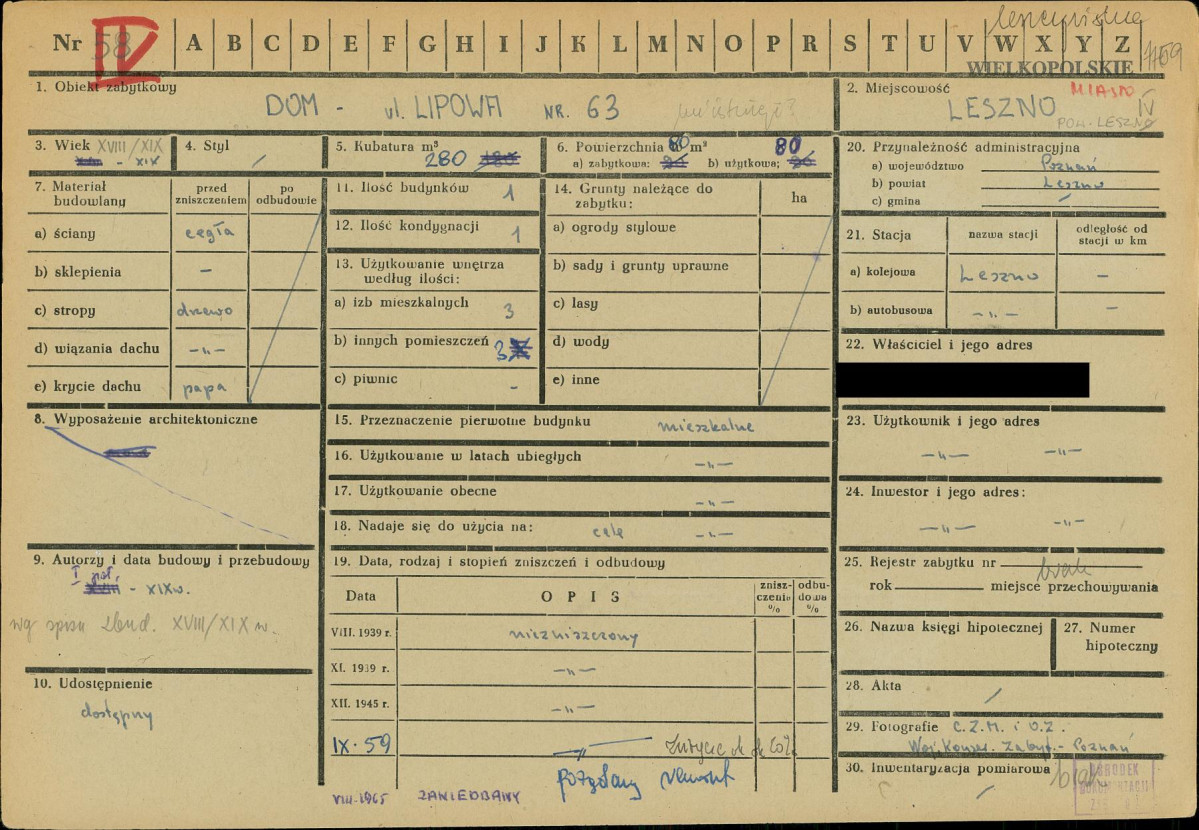 Nr 58 IV A B C D E F G H I J K L M N O P R S T U V W X Y Z
WIELKOPOLSKIE
1. Obiekt zabytkowy
DOM - ul. LIPOWA NR. 63
2. Miejscowość
MIASTO
LESZNO IV
POW. LESZNO
3. Wiek XVIII/XIX
- XIX
4. Styl /
5. Kubatura m³
280
6. Powierzchnia m²
a) zabytkowa: 80 b) użytkowa; 80
7. Materiał budowlany
przed zniszczeniem
po odbudowie
a) ściany cegła
b) sklepienia —
c) stropy drzewo
d) wiązania dachu -„-
e) krycie dachu papa
8. Wyposażenie architektoniczne
9. Autorzy i data budowy i przebudowy
I poł.
XVIII - XIX w.
wg spisu zbud. XVIII/XIX w.
10. Udostępnienie
dostępny
11. Ilość budynków 1
12. Ilość kondygnacji 1
13. Użytkowanie wnętrza według ilości:
a) izb mieszkalnych 3
b) innych pomieszczeń 3
c) piwnic -
14. Grunty należące do zabytku:
ha
a) ogrody stylowe
b) sady i grunty uprawne
c) lasy
d) wody
e) inne
15. Przeznaczenie pierwotne budynku mieszkalne
16. Użytkowanie w latach ubiegłych -„-
17. Użytkowanie obecne -„-
18. Nadaje się do użycia na: cele -„-
19. Data, rodzaj i stopień zniszczeń i odbudowy
Data
OPIS
zniszczenia %
odbudowa %
VIII. 1939 r. niezniszczony
XI. 1939 r. -„-
XII. 1945 r. -„-
IX. 59 -„- Zużycie ok
remont
VIII.1965 ZANIEDBANY
20. Przynależność administracyjna
a) województwo Poznań
b) powiat Leszno
c) gmina /
21. Stacja
nazwa stacji
odległość od stacji w km
a) kolejowa Leszno —
b) autobusowa -„- —
22. Właściciel i jego adres
23. Użytkownik i jego adres
-„- -„-
24. Inwestor i jego adres:
-„- -„-
25. Rejestr zabytku nr brak
rok miejsce przechowywania
26. Nazwa księgi hipotecznej
27. Numer hipoteczny
28. Akta /
29. Fotografie C.Z.M. i O.Z.
Woj. Konser. Zabyt. - Poznań
30. Inwentaryzacja pomiarowa brak
/
OŚRODEK
DOKUMENTACJI